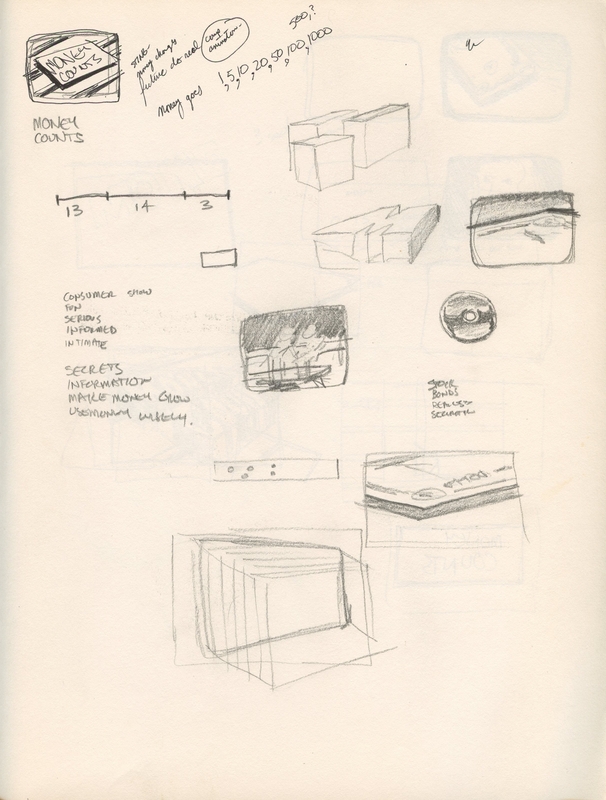 MONEY
COUNTS
money changes
future do real
comp
animation
500,?
money goes 1,5,10,20,50,100,1000
MONEY
COUNTS
13 14 3
CONSUMER SHOW
FUN
SERIOUS
INFORMED
INTIMATE
SECRETS
INFORMATION
MAKE MONEY GROW
USE MONEY WISELY.
BONDS